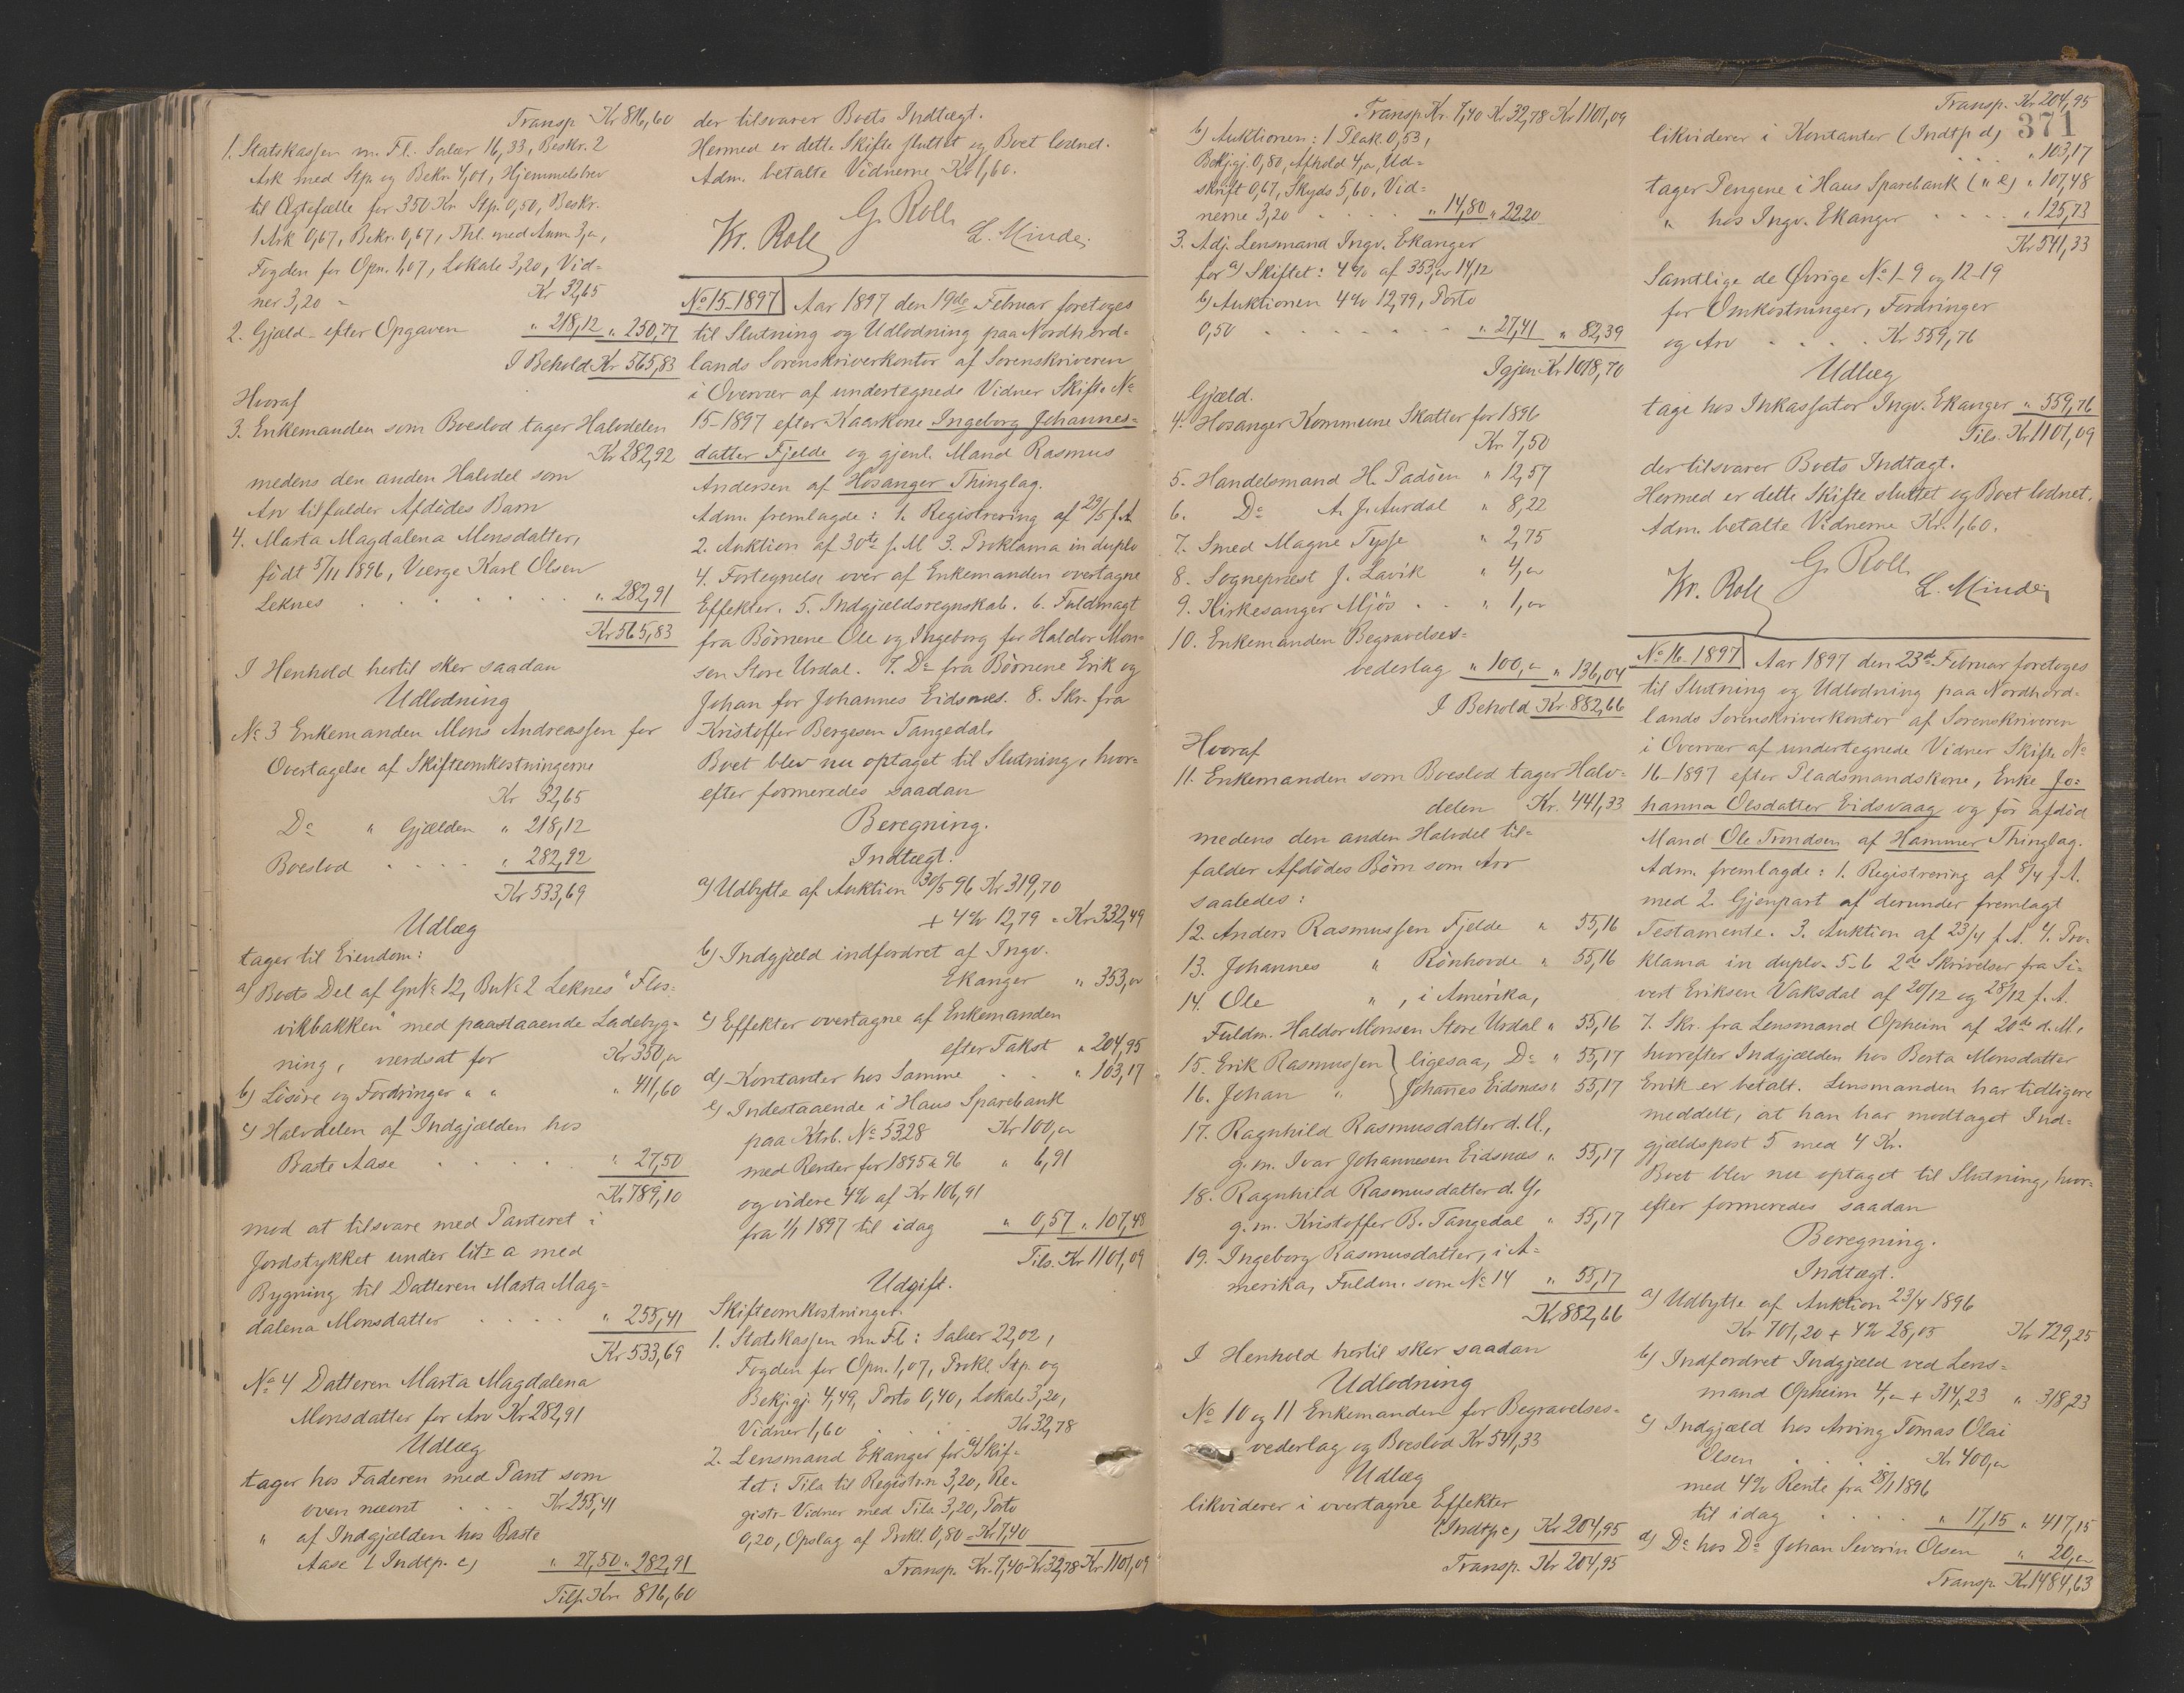 Transp. Kr 816,60
1. Statskassen m. Fl. Salær 16,33, Beskr. 2
Ark med Stp. og Bekr. 4,01, Hjemmelsbrev
til Ægtefælle for 350 Kr. Stp. 0,50, Beskr.
1 Ark 0,67, Bekr. 0,67, Thl. med Anm 3,00,
Fogden for Opn. 1,07, Lokale 3,20, Vid-
ner 3,20 - Kr 32,65
2. Gjæld - efter Opgaven " 218,12 " 250,77
I Behold Kr 565,83
Hvoraf
3. Enkemanden som Boeslod tager Halvdelen
Kr 282,92
medens den anden Halvdel som
Arv tilfalder Afdødes Barn
4. Marta Magdalena Monsdatter,
født 5/11 1896, Værge Karl Olsen
Leknes . . . . . . " 282,91
Kr 565,83
I Henhold hertil sker saadan
Udlodning
No 3 Enkemanden Mons Andreassen for
Overtagelse af Skifteomkostningerne
Kr 32,65
Do " Gjælden " 218,12
Boeslod . . . . " 282,92
Kr 533,69
Udlæg
tager til Eiendom:
a) Boets Del af GrNo 12, BrNo 2 Leknes "Flos-
vikbakken" med paastaaende Ladebyg-
ning, værdsat for Kr 350,00
b) Løsøre og Fordringer " " " 411,60
c) Halvdelen af Indgjælden hos
Baste Aase . . . . . " 27,50
Kr 789,10
mod at tilsvare med Panteret i
Jordstykket under litr a med
Bygning til Datteren Marta Mag-
dalena Monsdatter . . . . " 255,41
Kr 533,69
No 4 Datteren Marta Magdalena
Monsdatter for Arv Kr 282,91
Udlæg
tager hos Faderen med Pant som
oven nævnt . . . Kr 255,41
" af Indgjælden hos Baste
Aase (Indtp. c) " 27,50 " 282,91
Tils. Kr 816,60
der tilsvarer Boets Indtægt.
Hermed er dette Skifte sluttet og Boet lodnet.
Adm. betalte Vidnerne Kr 1,60.
G. Roll
Kr. Roll L. Minde.
No 15-1897 Aar 1897 den 19de Februar foretoges
til Slutning og Udlodning paa Nordhord-
lands Sorenskriverkontor af Sorenskriveren
i Overvær af undertegnede Vidner Skifte No
15-1897 efter Kaarkone Ingeborg Johannes-
datter Fjelde og gjenl. Mand Rasmus
Andersen af Hosanger Thinglag.
Adm. fremlagde: 1. Registrering af 29/5 f. A.
2. Auktion af 30te s. M 3. Proklama in duplo
4. Fortegnelse over af Enkemanden overtagne
Effekter. 5. Indgjældsregnskab. 6. Fuldmagt
fra Børnene Ole og Ingeborg for Haldor Mon-
sen Store Urdal. 7. Do fra Børnene Erik og
Johan for Johannes Eidsnes. 8. Skr. fra
Kristoffer Bergesen Tangedal.
Boet blev nu optaget til Slutning, hvor-
efter formeredes saadan
Beregning.
Indtægt.
a) Udbytte af Auktion 30/5 96 Kr 319,70
+ 4% 12,79 = Kr 332,49
b) Indgjæld indfordret af Ingv.
Ekanger " 353,00
c) Effekter overtagne af Enkemanden
efter Takst " 204,95
d) Kontanter hos Samme . . " 103,17
e) Indestaaende i Haus Sparebank
paa Ktrb. No 5328 Kr 100,00
med Renter for 1895 & 96 " 6,91
og videre 4% af Kr 106,91
fra 1/1 1897 til idag " 0,57 " 107,48
Tils. Kr 1101,09
Udgift.
Skifteomkostninger.
1. Statskassen m. Fl: Salær 22,02,
Fogden for Opn. 1,07, Prokl. Stp. og
Bekjgj. 4,49, Porto 0,40, Lokale 3,20,
Vidner 1,60 . . . Kr 32,78
2. Lensmand Ekanger for a) Skif-
tet: Tils. til Registr.n 3,20, Re-
gistr. Vidner med Tils. 3,20, Porto
0,20, Opslag af Prokl. 0,80 = Kr 7,40
Transp. Kr. 7,40 Kr 32,78 Kr 1101,09
Transp. Kr. 7,40 Kr 32,78 Kr 1101,09
b) Auktionen: 1 Plak. 0,53,
Bekjgj. 0,80, Afhold 4,00, Ud-
skrift 0,67, Skyds 5,60, Vid-
nerne 3,20 . . . " 14,80 " 22,20
3. Adj. Lensmand Ingv. Ekanger
for a) Skiftet: 4% af 353,00 14,12
b) Auktionen 4% 12,79, Porto
0,50 . . . . . " 27,41 " 82,39
Igjen Kr 1018,70
Gjæld.
4. Hosanger Kommune Skatter for 1896
Kr 7,50
5. Handelsmand H. Padøen " 12,57
6. Do A. J. Aurdal " 8,22
7. Smed Magne Tysse " 2,75
8. Sogneprest J. Lavik " 4,00
9. Kirkesanger Mjøs . . " 1,00
10. Enkemanden Begravelses-
vederlag " 100,00 " 136,04
I Behold Kr. 882,66
Hvoraf
11. Enkemanden som Boeslod tager Halv-
delen Kr. 441,33
medens den anden Halvdel til-
falder Afdødes Børn som Arv
saaledes:
12. Anders Rasmussen Fjelde " 55,16
13. Johannes " Rönhovde " 55,16
14. Ole ", i Amerika,
Fuldm. Haldor Monsen Store Urdal " 55,16
15. Erik Rasmussen } ligesaa, Do " 55,17
16. Johan " } Johanes Eidsnes " 55,17
17. Ragnhild Rasmusdatter d. Æ.,
g. m. Ivar Johannesen Eidsnes " 55,17
18. Ragnhild Rasmusdatter d. Y,
g. m. Kristoffer B. Tangedal " 55,17
19. Ingeborg Rasmusdatter, i A-
merika, Fuldm. som No 14 " 55,17
Kr 882,66
I Henhold hertil sker saadan
Udlodning
No 10 og 11 Enkemanden for Begravelses-
vederlag og Boeslod Kr 541,33
Udlæg
likviderer i overtagne Effekter
(Indtp c) Kr 204,95
Transp. Kr 204,95
Transp. Kr 204,95
371
likviderer i Kontanter (Indtp d)
. . . . " 103,17
tager Pengene i Haus Sparebank (" e) " 107,48
" hos Ingv. Ekanger . . . . " 125,73
Kr 541,33
Samtlige de Øvrige No 1-9 og 12-19
for Omkostninger, Fordringer
og Arv . . . . Kr 559,76
Udlæg
tage hos Inkassator Ingv. Ekanger " 559,76
Tils. Kr 1101,09
der tilsvarer Boets Indtægt.
Hermed er dette Skifte sluttet og Boet lodnet.
Adm. betalte Vidnerne Kr. 1,60.
G. Roll
Kr. Roll L. Minde.
No 16-1897 Aar 1897 den 23de Februar foretoges
til Slutning og Udlodning paa Nordhord-
lands Sorenskriverkontor af Sorenskriveren
i Overvær af undertegnede Vidner Skifte No
16-1897 efter Pladsmandskone, Enke Jo-
hanna Olsdatter Eidsvaag og før afdød
Mand Ole Trondsen af Hammer Thinglag.
Adm. fremlagde: 1. Registrering af 8/4 f. A.
med 2. Gjenpart af derunder fremlagt
Testamente. 3. Auktion af 23/4 f. A. 4. Pro-
klama in duplo. 5-6 2de Skrivelser fra Si-
vert Eriksen Vaksdal af 20/12 og 28/12 f. A.
7. Skr. fra Lensmand Opheim af 20de d. M.,
hvorefter Indgjælden hos Berta Monsdatter
Ervik er betalt. Lensmanden har tidligere
meddelt, at han har modtaget Ind-
gjældspost 5 med 4 Kr.
Boet blev nu optaget til Slutning, hvor-
efter formeredes saadan
Beregning.
Indtægt.
a) Udbytte af Auktion 23/4 1896
Kr 701,20 + 4% 28,05 Kr 729,25
b) Indfordret Indgjæld ved Lens-
mand Opheim 4,00 + 314,23 " 318,23
c) Indgjæld hos Arving Tomas Olai
Olsen . . . Kr 400,00
med 4% Rente fra 28/1 1896
til idag . . . . " 17,15 " 417,15
d) Do hos Do Johan Severin Olsen " 20,00
Transp. Kr 1484,63